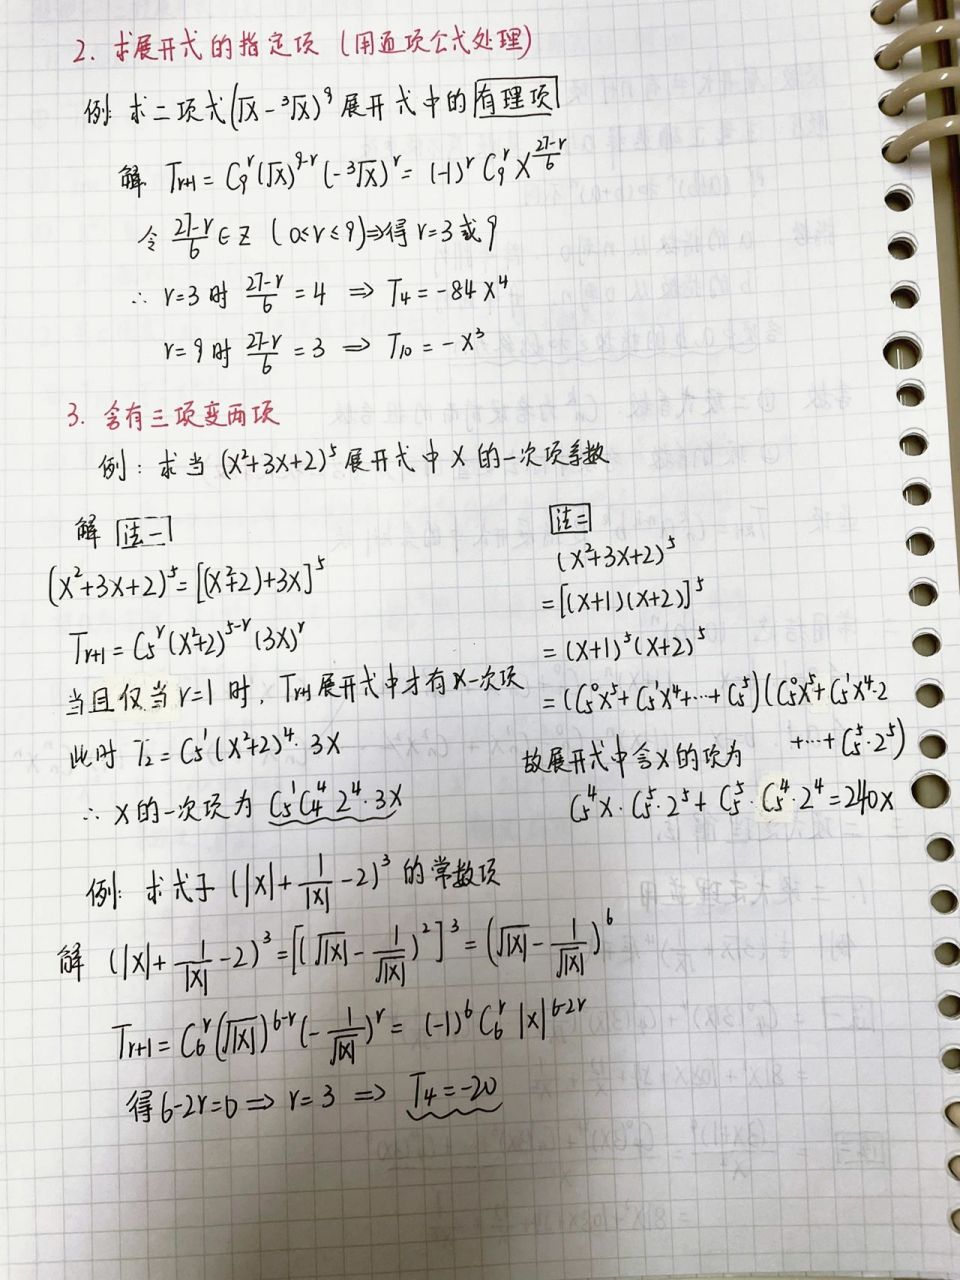 2. 求展开式的指定项 (用通项公式处理)
例: 求二项式(√x - ³√x)⁹ 展开式中的 有理项
解 Tr+1 = C₉ʳ(√x)⁹⁻ʳ(-³√x)ʳ = (-1)ʳ C₉ʳ x^((27-r)/6)
令 (27-r)/6 ∈ Z (0≤r≤9) ⇒得 r=3 或 9
∴ r=3 时 (27-r)/6 = 4 ⇒ T₄ = -84x⁴
r=9 时 (27-r)/6 = 3 ⇒ T₁₀ = -x³
3. 含有三项变两项
例: 求当 (x²+3x+2)⁵ 展开式中 x 的一次项系数
解 法一
(x²+3x+2)⁵ = [(x²+2)+3x]⁵
Tr+1 = C₅ʳ(x²+2)⁵⁻ʳ(3x)ʳ
当且仅当 r=1 时, Tr+1 展开式中才有x一次项
此时 T₂ = C₅¹(x²+2)⁴·3x
∴ x的一次项为 C₅¹C₄⁴2⁴·3x
法二
(x²+3x+2)⁵
= [(x+1)(x+2)]⁵
= (x+1)⁵(x+2)⁵
= (C₅⁰x⁵+C₅¹x⁴+⋯+C₅⁵)(C₅⁰x⁵+C₅¹x⁴·2
+⋯+C₅⁵·2⁵)
故展开式中含x的项为
C₅⁴x·C₅⁵·2⁵+C₅⁵·C₅⁴·2⁴=240x
例: 求式子 (|x|+1/|x|-2)³ 的常数项
解 (|x|+1/|x|-2)³=[(√|x|-1/√|x|)²]³=(√|x|-1/√|x|)⁶
Tr+1 = C₆ʳ(√|x|)⁶⁻ʳ(-1/√|x|)ʳ = (-1)⁶C₆ʳ|x|⁶⁻²ʳ
得 6-2r=0 ⇒ r=3 ⇒ T₄=-20